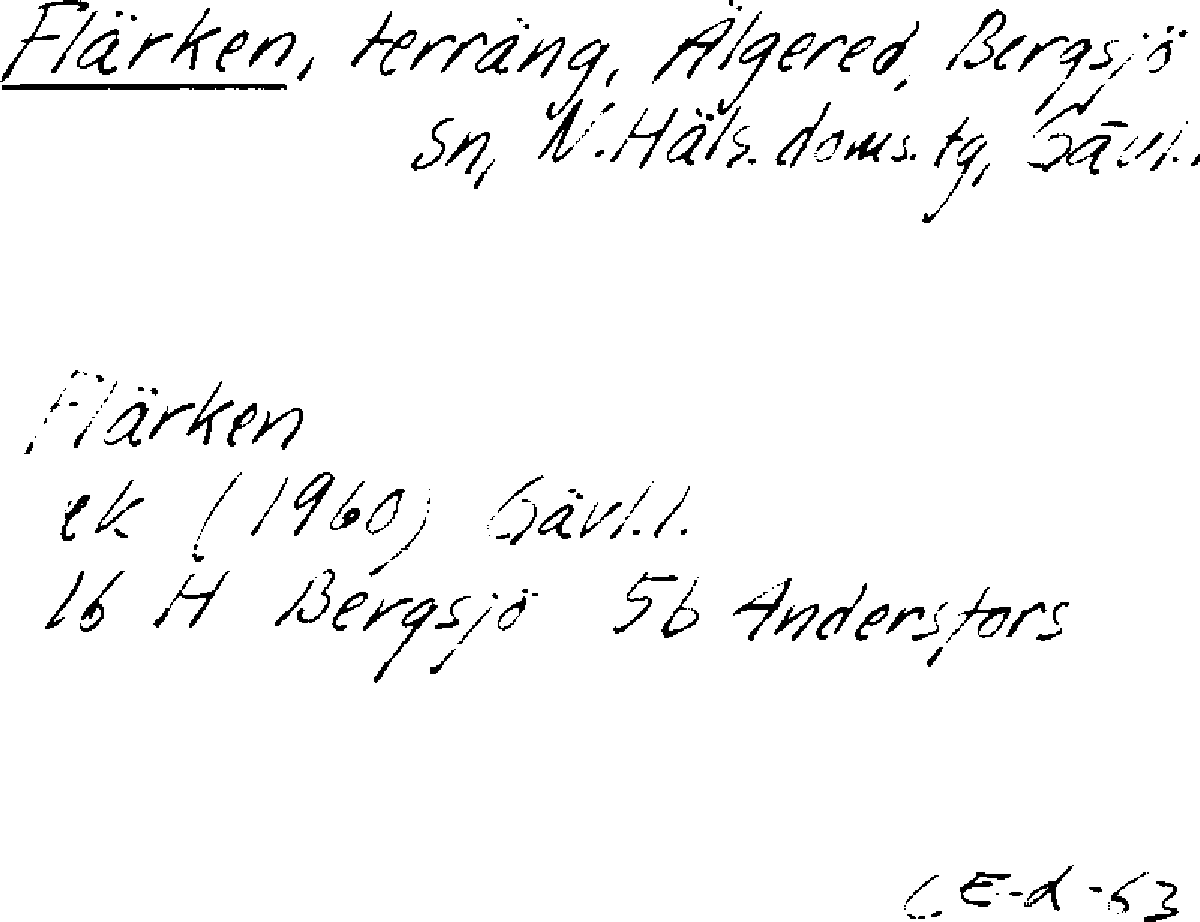 Flärken, terräng, Älgered, Bergsjö
sn, N. Häls. doms. tg, Gävl.
Flärken
ek (1960) Gävl.l.
16 H Bergsjö 5b Andersfors
C.E-d-63